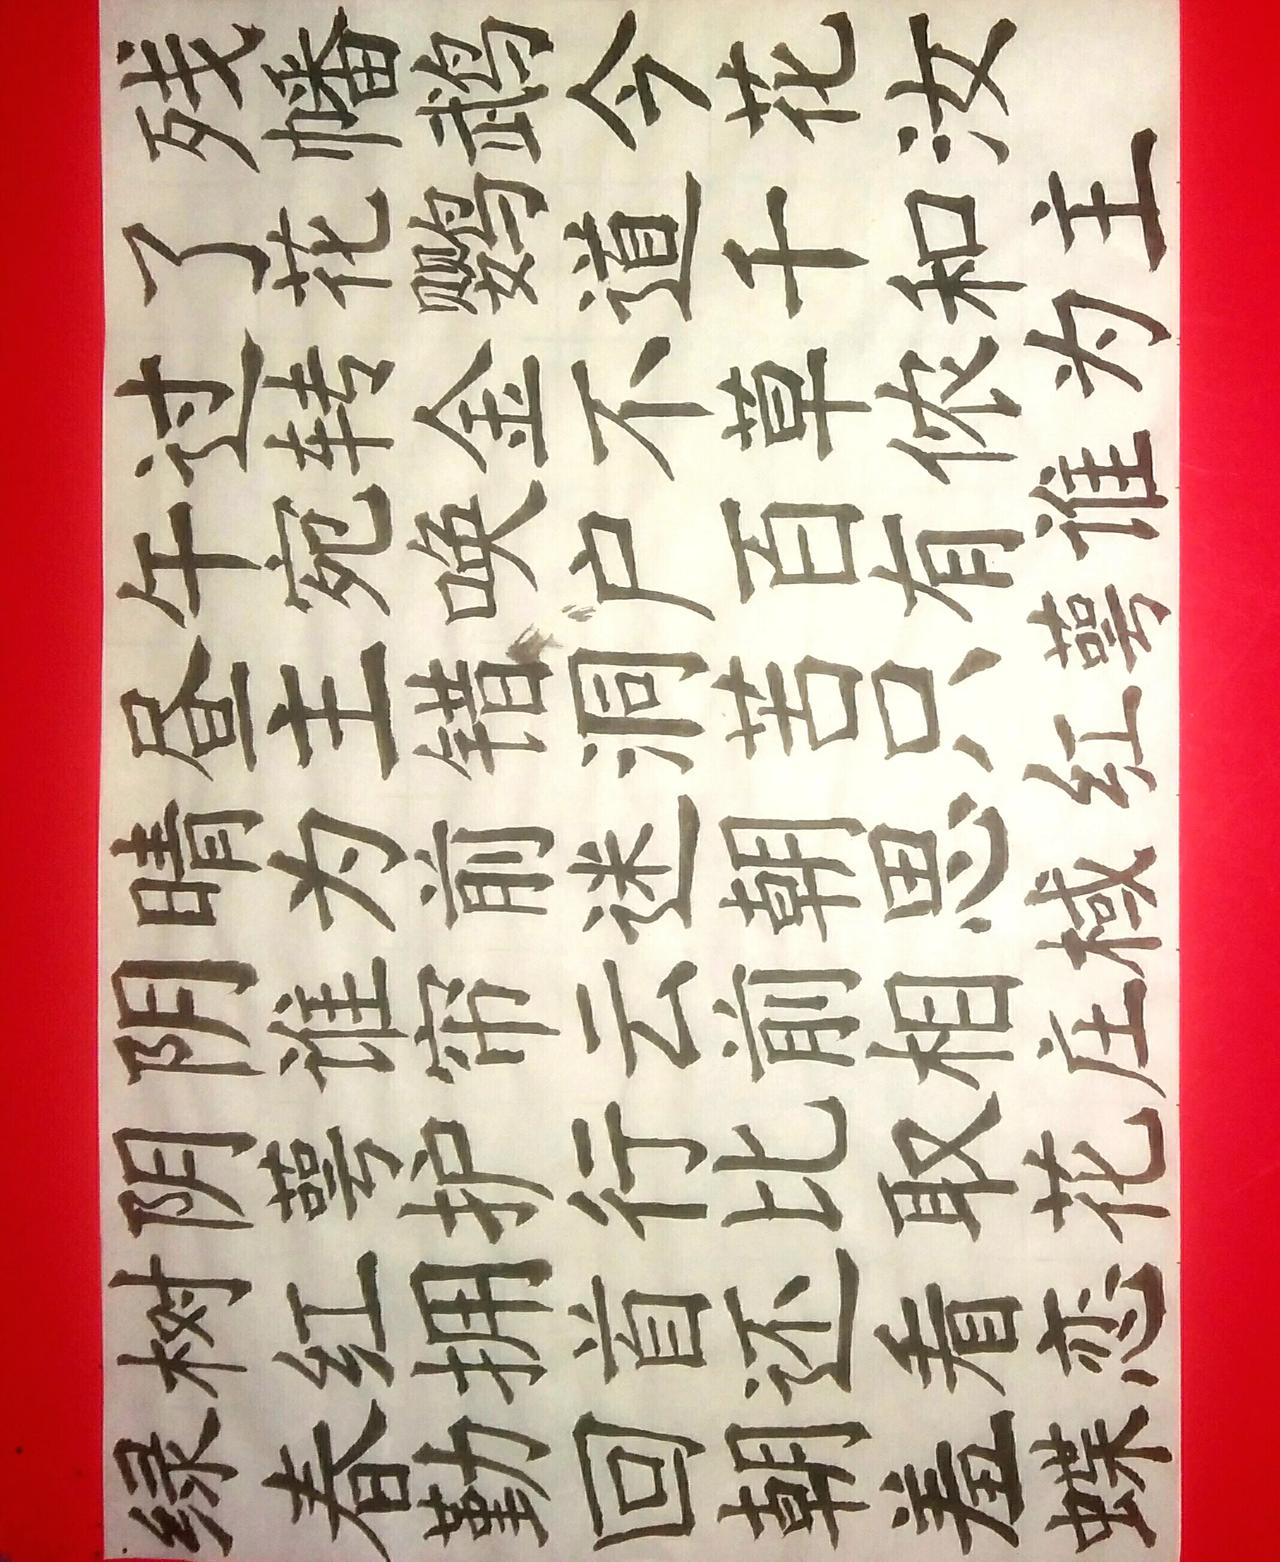 绿树阴阴晴昼午过了残
春红萼谁为主宛转花幡
勤拥护帘前错唤金鹦鹉
回首行云迷洞户不道今
朝还比前朝苦百草千花
羞看取相思只有侬和汝
蝶恋花庄棫红萼谁为主